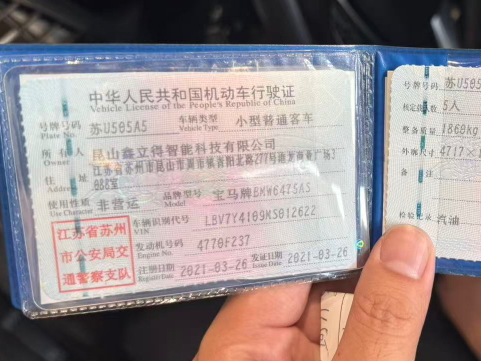 中华人民共和国机动车行驶证
Vehicle License of the People's Republic of China
号牌号码 苏U505A5 车辆类型 小型普通客车
Plate No. Vehicle Type
所有人 昆山鑫立得智能科技有限公司
Owner
住址 江苏省苏州市昆山市周市镇青阳北路277号港龙商业广场3
Address 088室
使用性质 非营运 品牌型号 宝马牌BMW6475AS
Use Character Model
车辆识别代号 LBV7Y4109KS012622
VIN
发动机号码 4770F237
Engine No.
注册日期 2021-03-26 发证日期 2021-03-26
Register Date Issue Date
江苏省苏州
市公安局交
通警察支队
号牌号码 苏U505
核定载人数 5人
整备质量 1860kg
外廓尺寸 4717×1
备注
检验记录 汽油